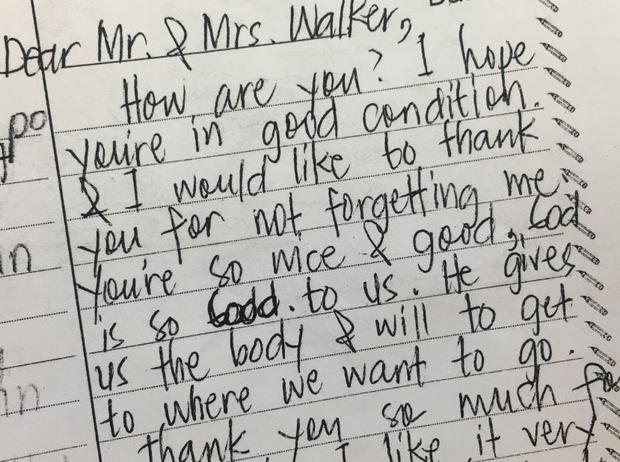 Dear Mr. & Mrs. Walker,
How are you? I hope
you're in good condition.
& I would like to thank
you for not forgetting me.
You're so nice & good, God
is so Good. to us. He gives
us the body & will to get
to where we want to go.
thank you so much for
I like it very